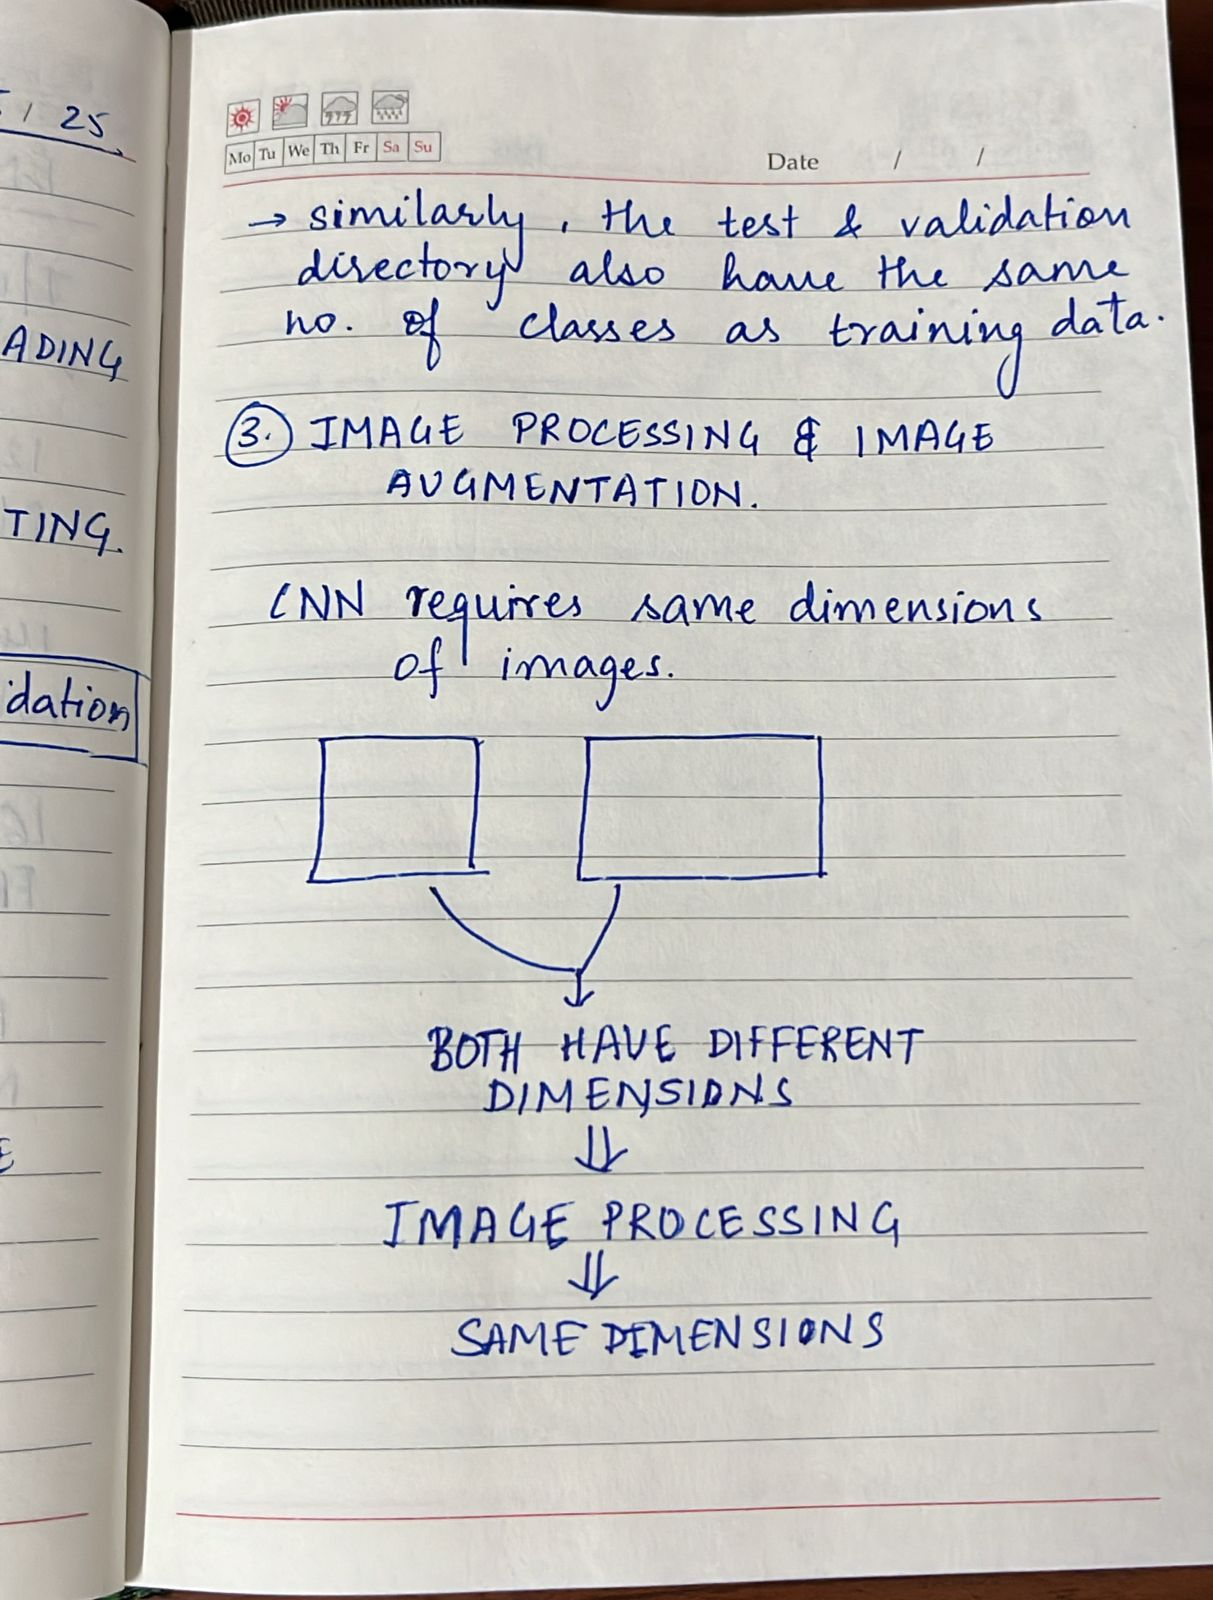 / 25
ADING
TING.
idation
Mo Tu We Th Fr Sa Su
Date / /
→ similarly, the test & validation
directory also have the same
no. of classes as training data.
3. IMAGE PROCESSING & IMAGE
AUGMENTATION.
CNN requires same dimensions
of images.
BOTH HAVE DIFFERENT
DIMENSIONS
⇓
IMAGE PROCESSING
⇓
SAME DIMENSIONS